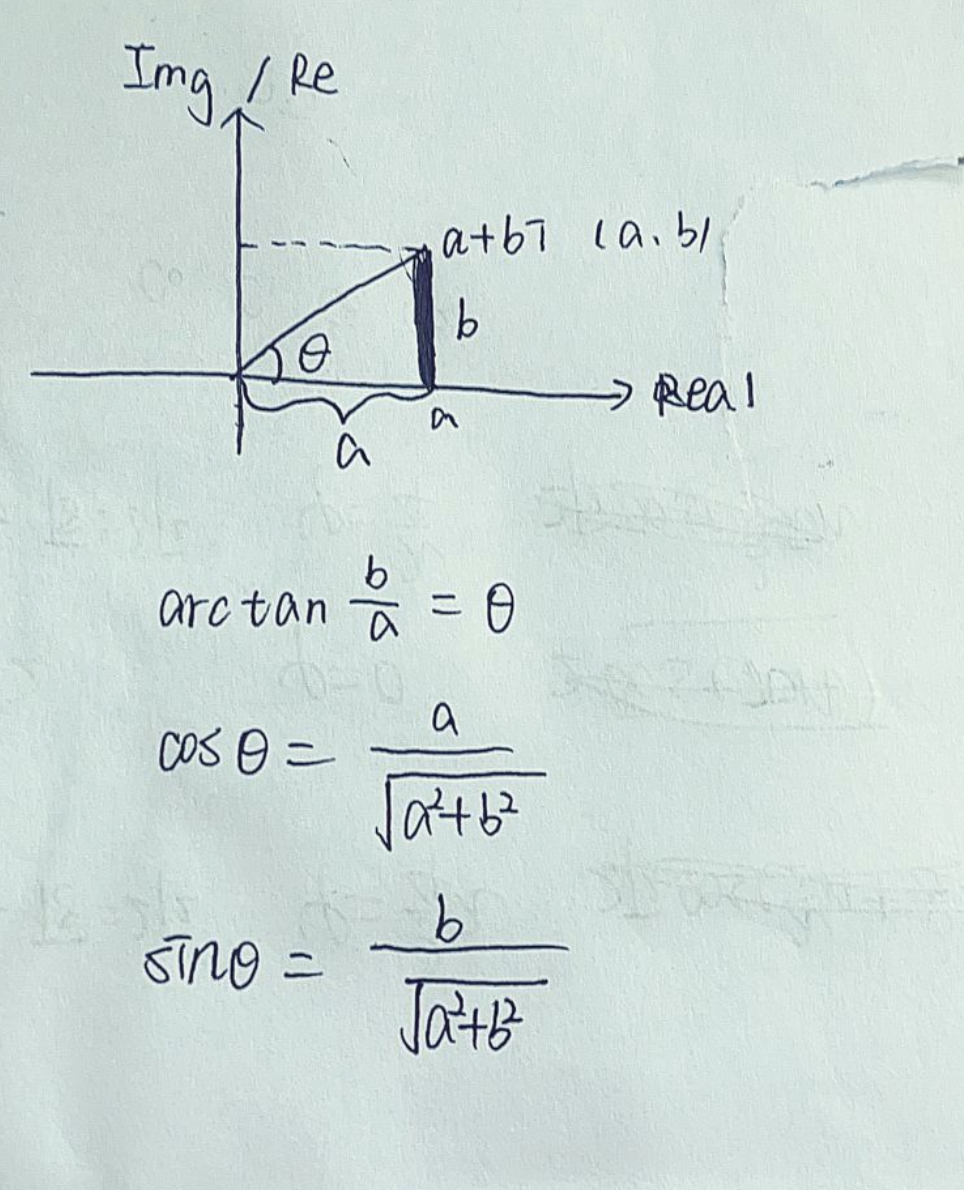 Img / Re
a+bi (a, b)
b
θ
Real
a
a
arctan b/a = θ
cos θ = a/√(a²+b²)
sinθ = b/√(a²+b²)